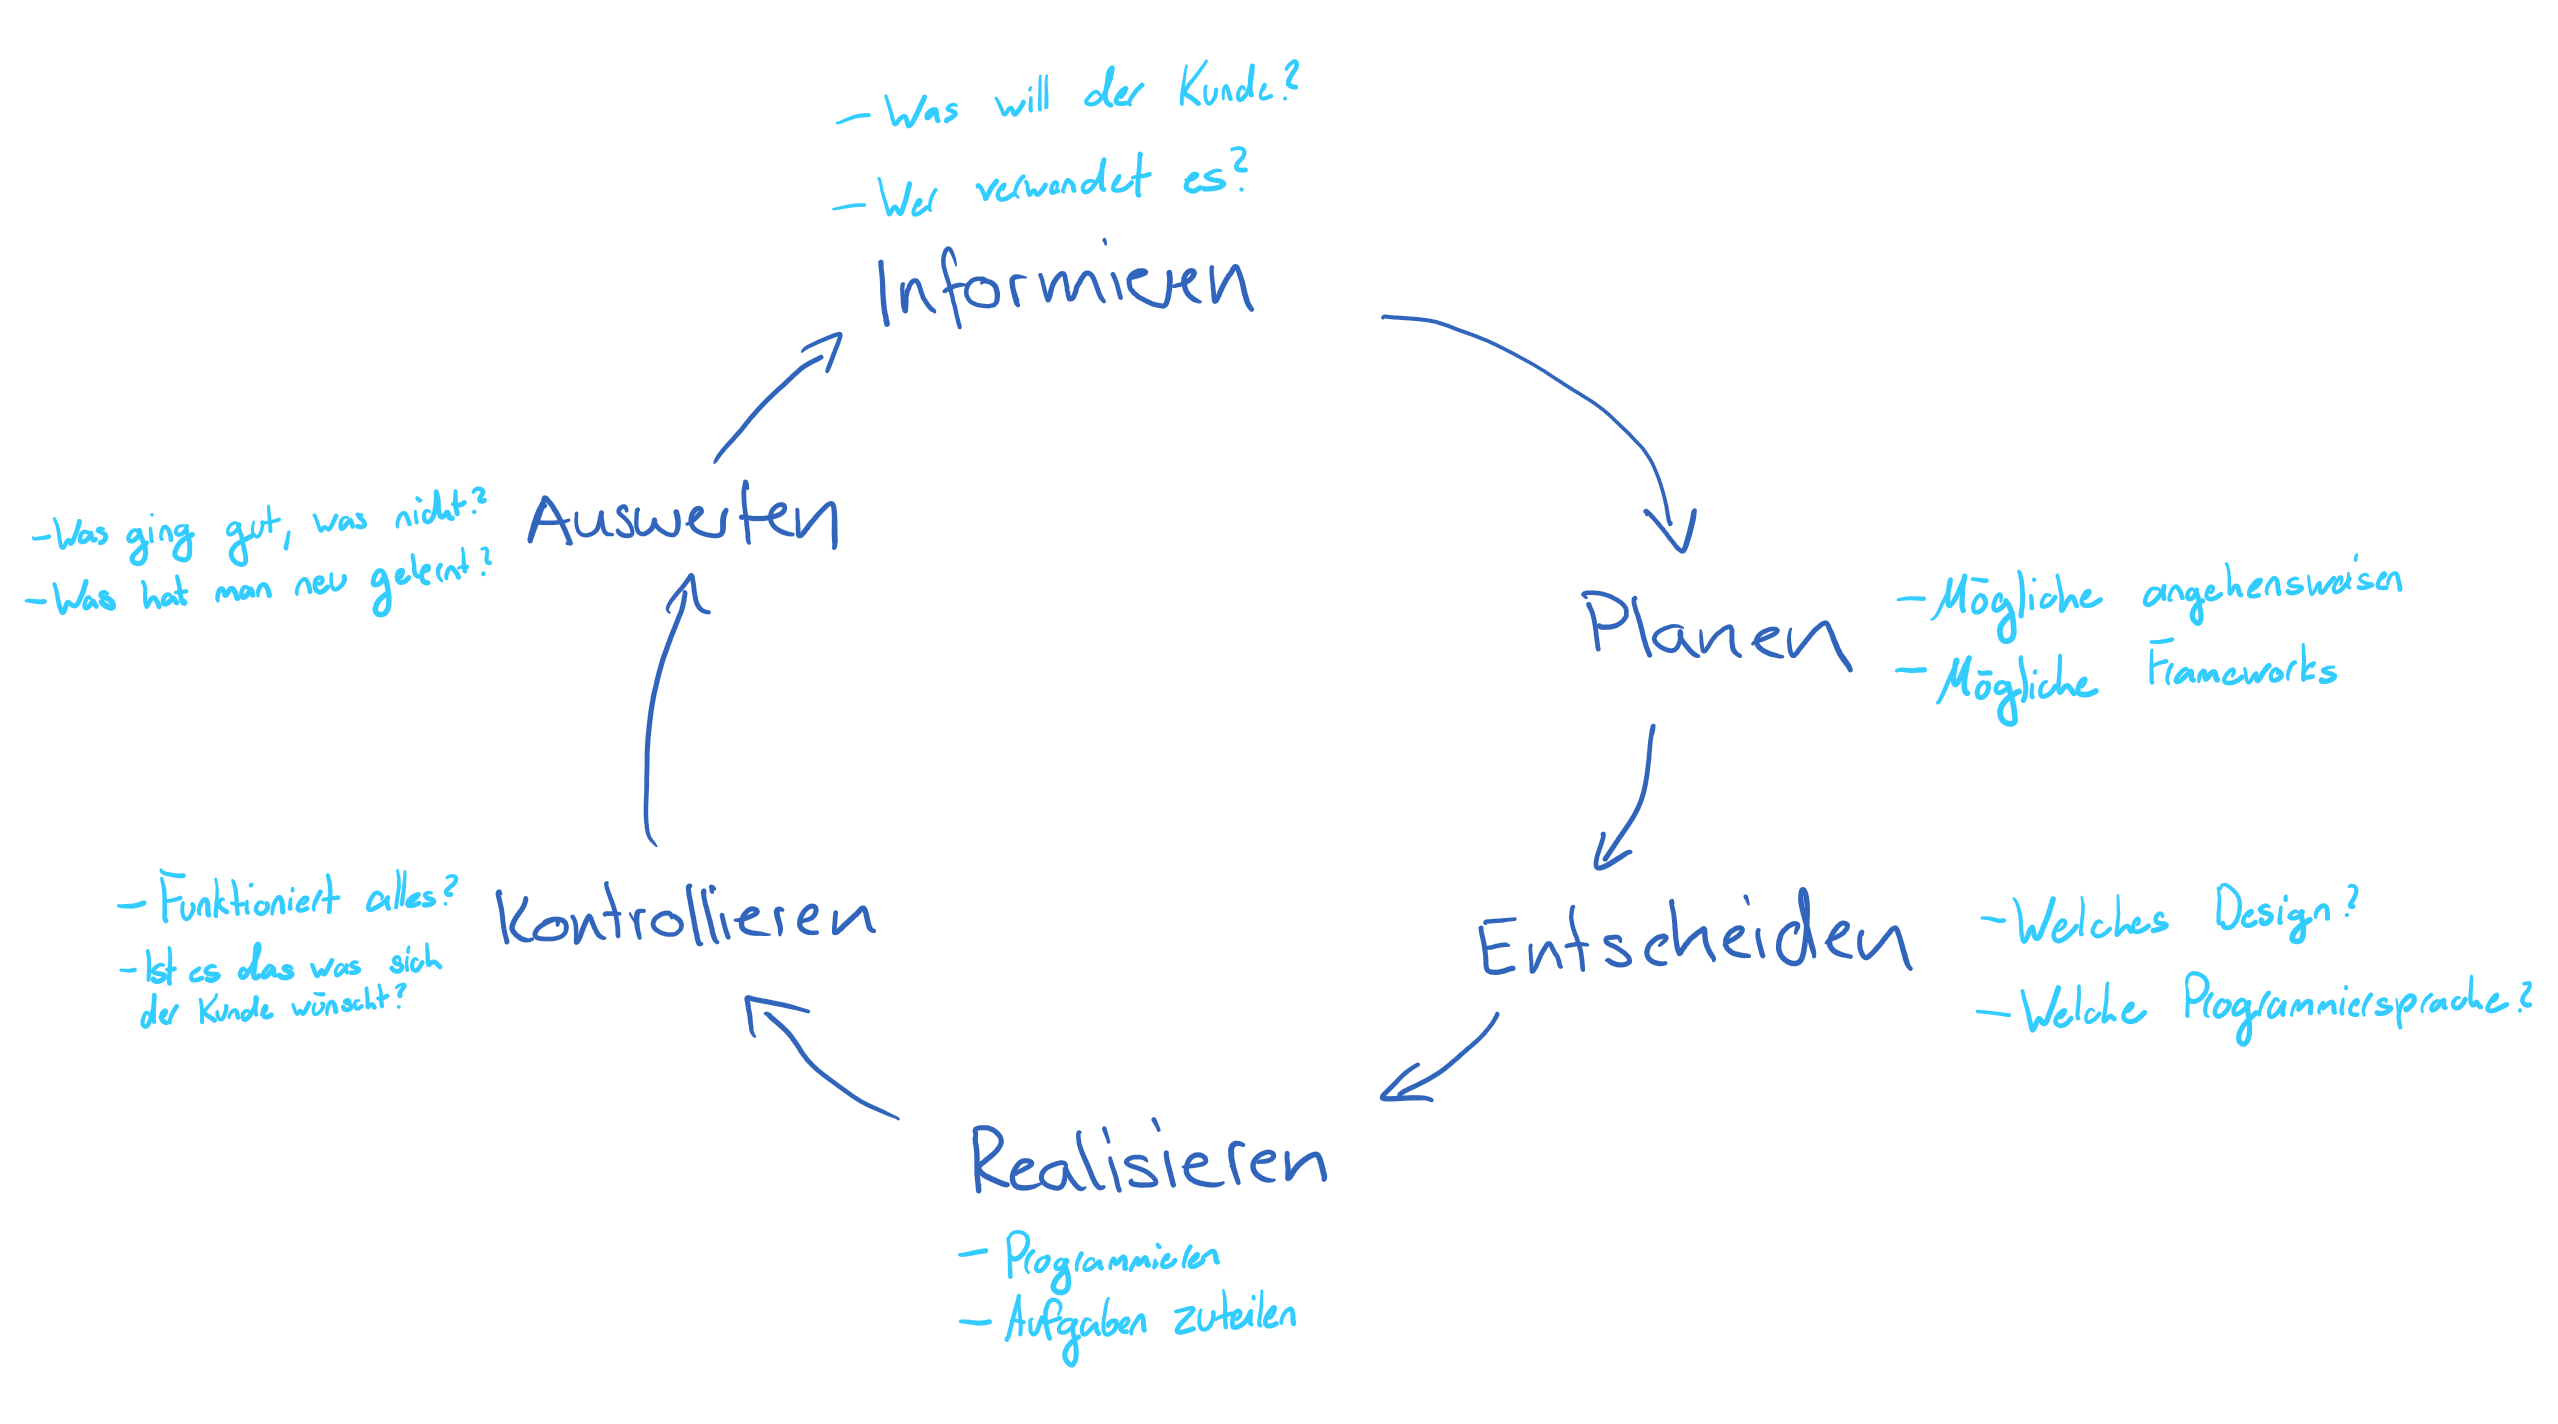 - Was will der Kunde?
- Wer verwendet es?
Informieren
Planen
- Mögliche angehensweisen
- Mögliche Frameworks
Entscheiden
- Welches Design?
- Welche Programmiersprache?
Realisieren
- Programmieren
- Aufgaben zuteilen
Kontrollieren
- Funktioniert alles?
- Ist es das was sich
der Kunde wünscht?
Auswerten
- Was ging gut, was nicht?
- Was hat man neu gelernt?